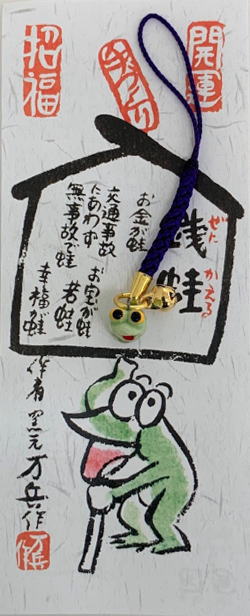 開運
招福
銭蛙
ぜに かえる
お金が蛙
交通事故
にあわず
無事故で蛙
お宝が蛙
若蛙
幸福が蛙
作者 窯元 万兵作